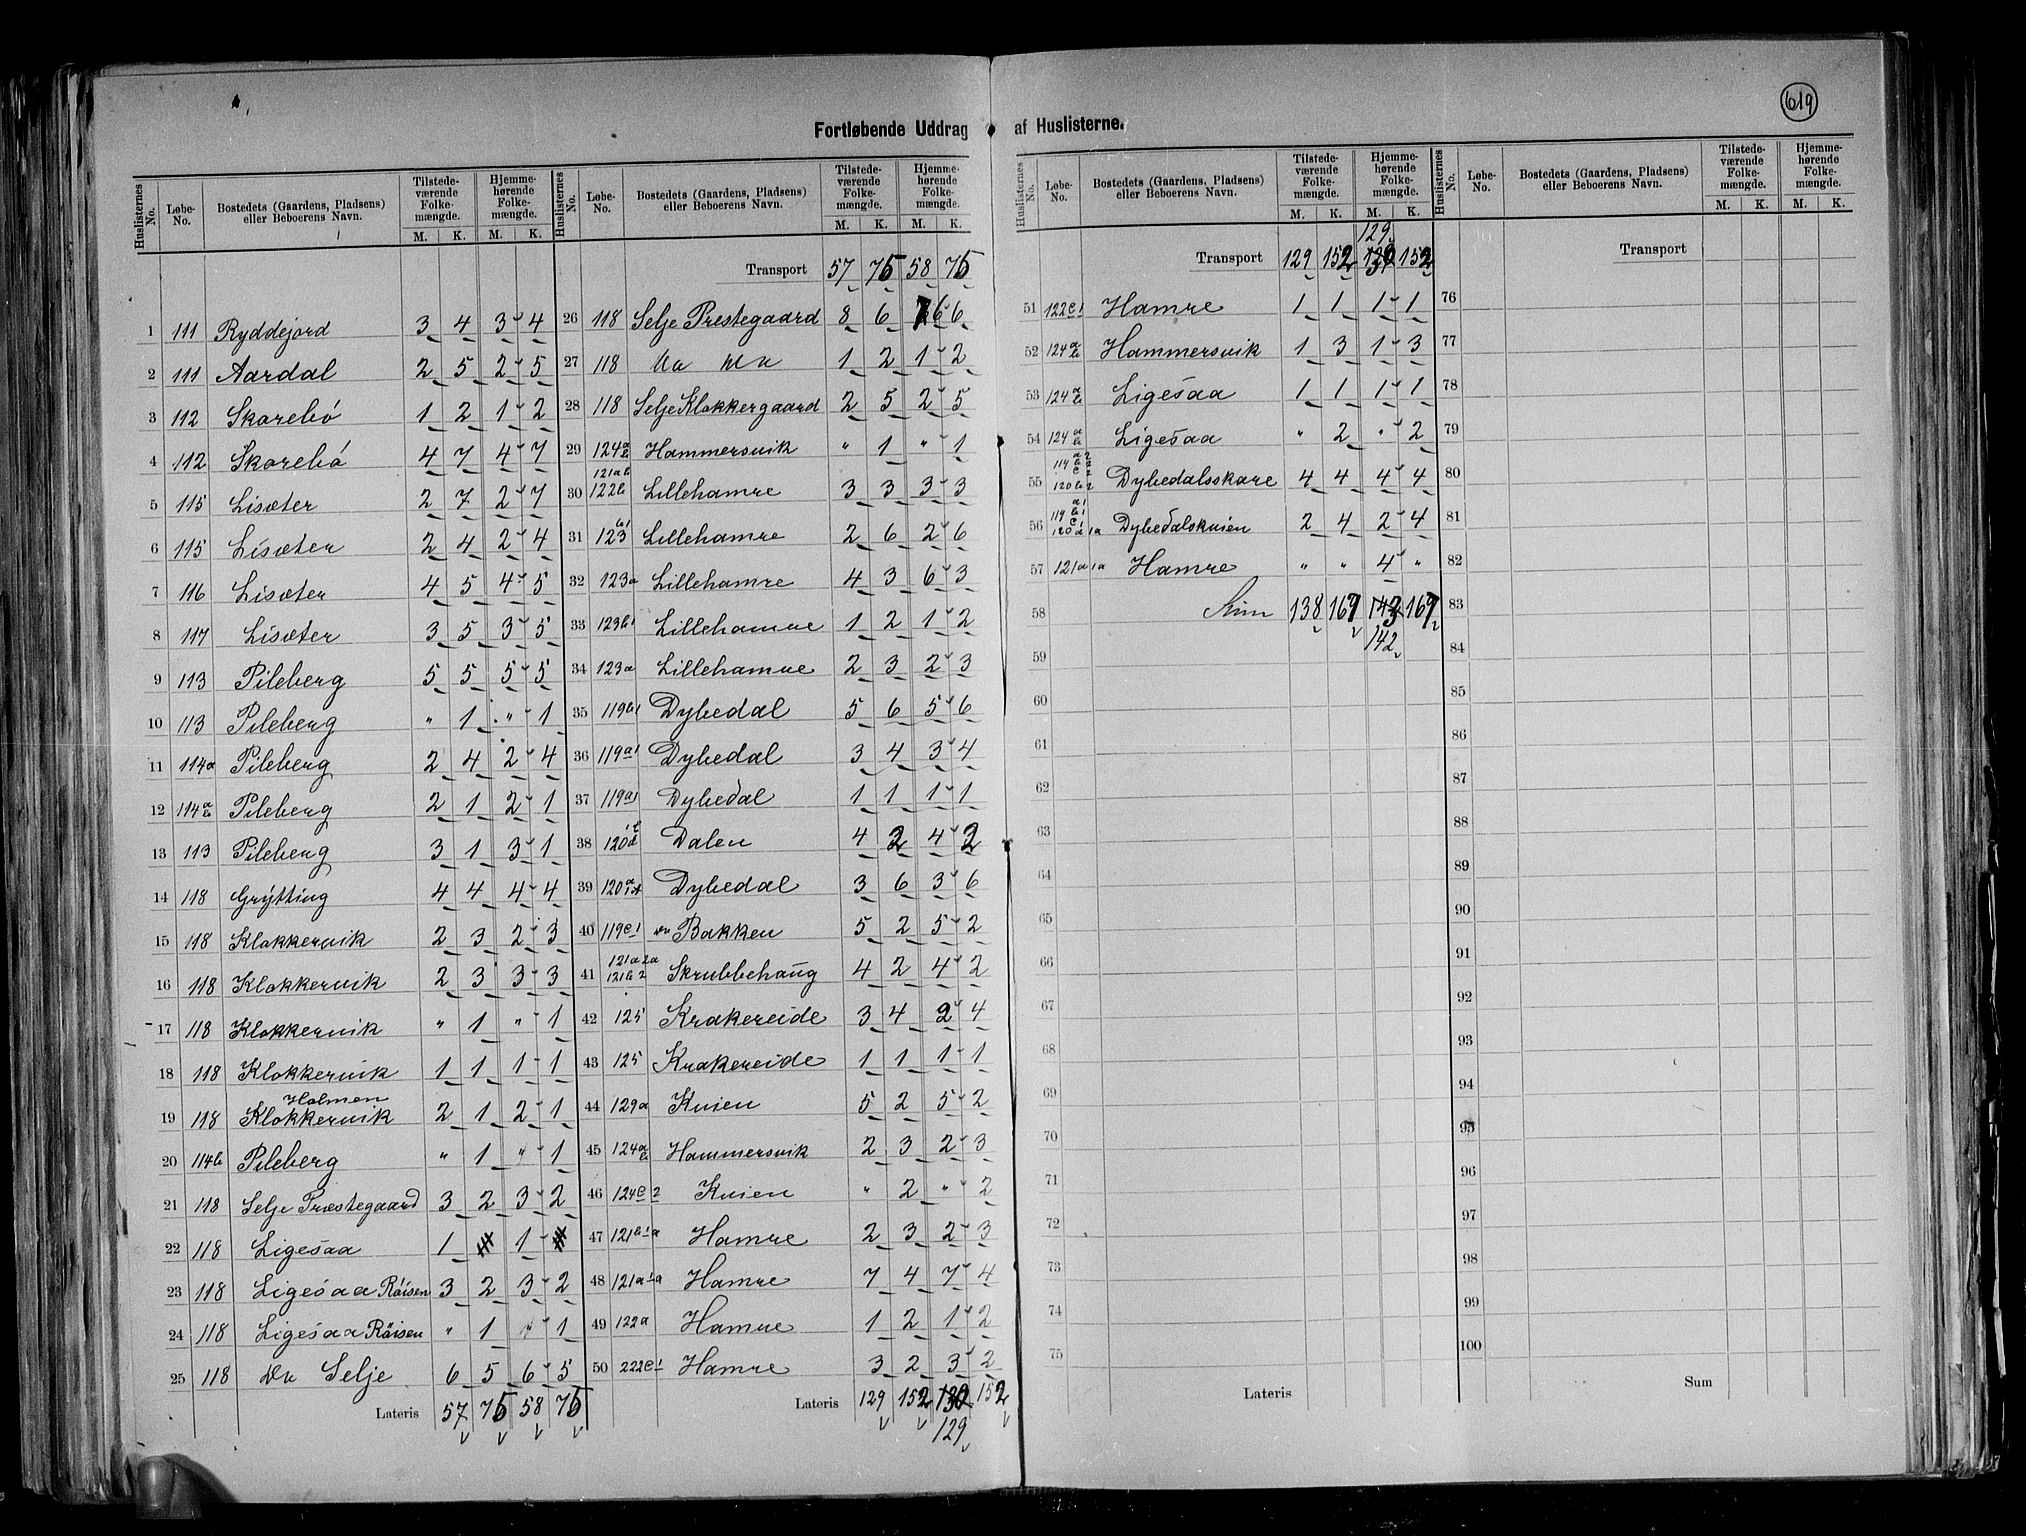 619
Fortløbende Uddrag af Huslisterne.
Huslisternes No. | Løbe-No. | Bostedets (Gaardens, Pladsens) eller Beboerens Navn. | Tilstedeværende Folkemængde. M. K. | Hjemmehørende Folkemængde. M. K.
1 111 Ryddejord 3 4 3 4
2 111 Aardal 2 5 2 5
3 112 Skorebø 1 2 1 2
4 112 Skorebø 4 7 4 7
5 115 Lisæter 2 7 2 7
6 115 Lisæter 2 4 2 4
7 116 Lisæter 4 5 4 5
8 117 Lisæter 3 5 3 5
9 113 Pileberg 5 5 5 5
10 113 Pileberg " 1 " 1
11 114a Pileberg 2 4 2 4
12 114 a b Pileberg 2 1 2 1
13 113 Pileberg 3 1 3 1
14 118 Grytting 4 4 4 4
15 118 Klokkervik 2 3 2 3
16 118 Klokkervik 2 3 3 3
17 118 Klokkervik " 1 " 1
18 118 Klokkervik 1 1 1 1
Holmen
19 118 Klokkervik 2 1 2 1
20 114b Pileberg " 1 " 1
21 118 Selje Præstegaard 3 2 3 2
22 118 Ligesaa 1 1
23 118 Ligesaa Röisen 3 2 3 2
24 118 Ligesaa Röisen " 1 " 1
25 118 Do Selje 6 5 6 5
Lateris 57 75 58 75
Huslisternes No. | Løbe-No. | Bostedets (Gaardens, Pladsens) eller Beboerens Navn. | Tilstedeværende Folkemængde. M. K. | Hjemmehørende Folkemængde. M. K.
Transport 57 75 58 75
26 118 Selje Prestegaard 8 6 6 6
27 118 Do Do 1 2 1 2
28 118 Selje Klokkergaard 2 5 2 5
29 124 a b Hammersvik " 1 " 1
30 121ab 122b Lillehamre 3 3 3 3
31 123 b1 Lillehamre 2 6 2 6
32 123a Lillehamre 4 3 6 3
33 123b1 Lillehamre 1 2 1 2
34 123a Lillehamre 2 3 2 3
35 119b1 Dybedal 5 6 5 6
36 119a1 Dybedal 3 4 3 4
37 119a1 Dybedal 1 1 1 1
38 120d Dalen 4 2 4 2
39 120a Dybedal 3 6 3 6
40 119c1 Bakken 5 2 5 2
41 121a2a 121b2 Skrubbehaug 4 2 4 2
42 125 Krakereide 3 4 2 4
43 125 Krakereide 1 1 1 1
44 129a Kvien 5 2 5 2
45 124 a b Hammersvik 2 3 2 3
46 124c2 Kvien " 2 " 2
47 121b1a Hamre 2 3 2 3
48 121a1a Hamre 7 4 7 4
49 122a Hamre 1 2 1 2
50 222c1 Hamre 3 2 3 2
Lateris 129 152 130 152
129
Huslisternes No. | Løbe-No. | Bostedets (Gaardens, Pladsens) eller Beboerens Navn. | Tilstedeværende Folkemængde. M. K. | Hjemmehørende Folkemængde. M. K.
129
Transport 129 152 130 152
51 122c1 Hamre 1 1 1 1
52 124 a b Hammersvik 1 3 1 3
53 124 a b Ligesaa 1 1 1 1
54 124 a b Ligesaa " 2 " 2
55 114 a2 b2 c2 120b2 Dybedalsskare 4 4 4 4
56 119 a1 b1 c1 120 d 1a Dybedalskvien 2 4 2 4
57 121a1a Hamre " " 4 "
58 Sum 138 167 143 167
142
59
60
61
62
63
64
65
66
67
68
69
70
71
72
73
74
75
Lateris
Huslisternes No. | Løbe-No. | Bostedets (Gaardens, Pladsens) eller Beboerens Navn. | Tilstedeværende Folkemængde. M. K. | Hjemmehørende Folkemængde. M. K.
Transport
76
77
78
79
80
81
82
83
84
85
86
87
88
89
90
91
92
93
94
95
96
97
98
99
100
Sum